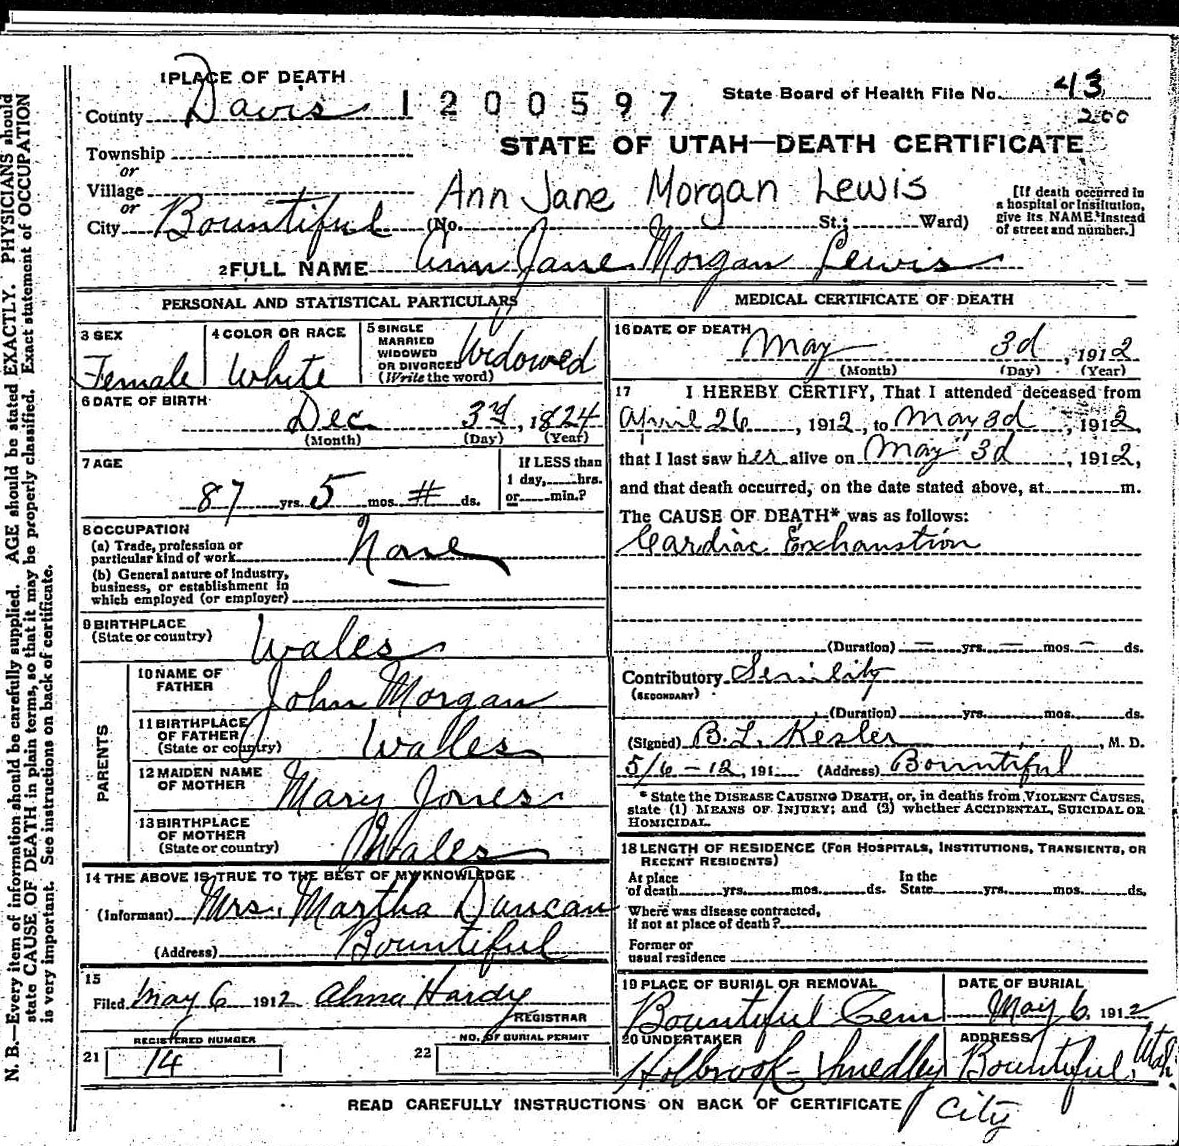 1 PLACE OF DEATH
County Davis 1200597
State Board of Health File No. 43
200
STATE OF UTAH—DEATH CERTIFICATE
Township
or
Village
or
City Bountiful (No. St.; Ward)
Ann Jane Morgan Lewis
[If death occurred in
a hospital or institution,
give its NAME instead
of street and number.]
2 FULL NAME Ann Jane Morgan Lewis
PERSONAL AND STATISTICAL PARTICULARS
3 SEX
Female
4 COLOR OR RACE
White
5 SINGLE
MARRIED
WIDOWED
OR DIVORCED
(Write the word)
Widowed
6 DATE OF BIRTH
Dec 3rd, 1824
(Month) (Day) (Year)
7 AGE
87 yrs. 5 mos. # ds.
If LESS than
1 day, hrs.
or min.?
8 OCCUPATION
(a) Trade, profession or
particular kind of work None
(b) General nature of industry,
business, or establishment in
which employed (or employer)
9 BIRTHPLACE
(State or country) Wales
PARENTS
10 NAME OF
FATHER John Morgan
11 BIRTHPLACE
OF FATHER
(State or country) Wales
12 MAIDEN NAME
OF MOTHER Mary Jones
13 BIRTHPLACE
OF MOTHER
(State or country) Wales
14 THE ABOVE IS TRUE TO THE BEST OF MY KNOWLEDGE
(Informant) Mrs. Martha Duncan
(Address) Bountiful
15
Filed May 6 1912 Alma Hardy
REGISTRAR
REGISTERED NUMBER
21 14
NO. OF BURIAL PERMIT
22
MEDICAL CERTIFICATE OF DEATH
16 DATE OF DEATH
May 3d, 1912
(Month) (Day) (Year)
17 I HEREBY CERTIFY, That I attended deceased from
April 26, 1912, to May 3d, 1912,
that I last saw her alive on May 3d, 1912,
and that death occurred, on the date stated above, at m.
The CAUSE OF DEATH* was as follows:
Cardiac Exhaustion
(Duration) — yrs. — mos. — ds.
Contributory Senility
(SECONDARY)
(Duration) yrs. mos. ds.
(Signed) B. L. Kesler, M. D.
5/6-12, 191 (Address) Bountiful
* State the DISEASE CAUSING DEATH, or, in deaths from VIOLENT CAUSES,
state (1) MEANS OF INJURY; and (2) whether ACCIDENTAL, SUICIDAL OR
HOMICIDAL.
18 LENGTH OF RESIDENCE (FOR HOSPITALS, INSTITUTIONS, TRANSIENTS, OR
RECENT RESIDENTS)
At place
of death yrs. mos. ds.
In the
State yrs. mos. ds.
Where was disease contracted,
if not at place of death?
Former or
usual residence
19 PLACE OF BURIAL OR REMOVAL
Bountiful Cem
DATE OF BURIAL
May 6, 1912
20 UNDERTAKER
Holbrook-Smedley
ADDRESS
Bountiful, Utah.
City
READ CAREFULLY INSTRUCTIONS ON BACK OF CERTIFICATE
N. B.—Every item of information should be carefully supplied. AGE should be stated EXACTLY. PHYSICIANS should
state CAUSE OF DEATH in plain terms, so that it may be properly classified. Exact statement of OCCUPATION
is very important. See instructions on back of certificate.